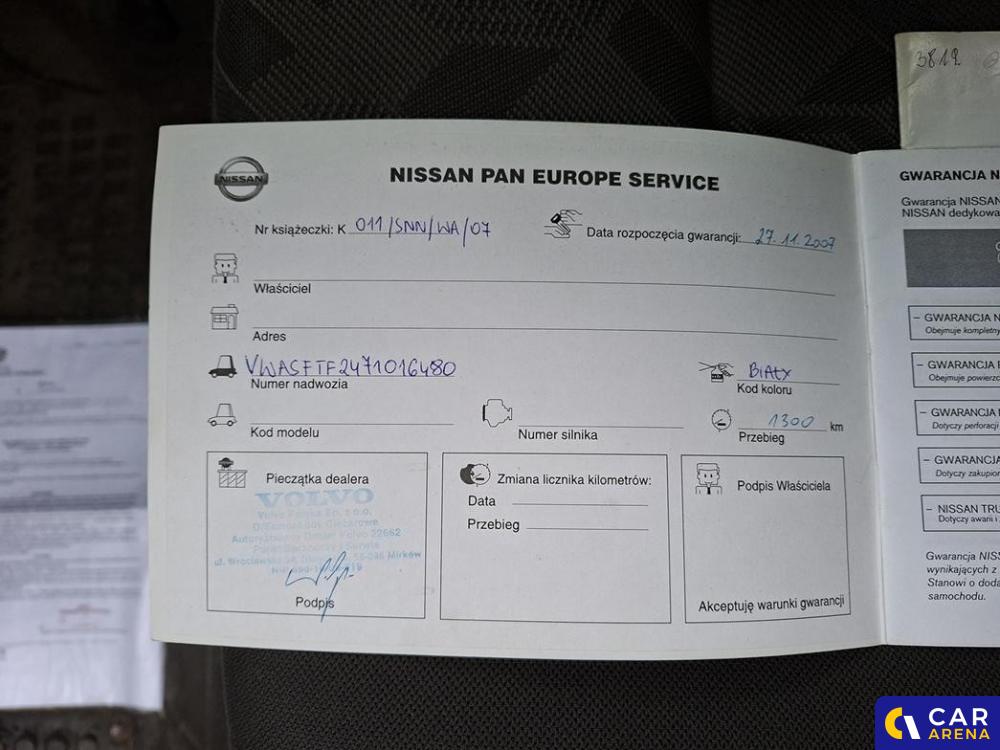 3812
NISSAN
NISSAN PAN EUROPE SERVICE
Nr książeczki: K 011/SNN/WA/07
Data rozpoczęcia gwarancji: 27.11.2007
Właściciel
Adres
VWASFTF2471016480
Numer nadwozia
BIAŁY
Kod koloru
Kod modelu
Numer silnika
1300 km
Przebieg
Pieczątka dealera
VOLVO
Volvo Polska Sp. z o.o.
Autoryzowany Dealer Volvo 22662
ul. Wrocławska Mirków
Podpis
Zmiana licznika kilometrów:
Data
Przebieg
Podpis Właściciela
Akceptuję warunki gwarancji
GWARANCJA N
Gwarancja NISSAN
NISSAN dedykowa
– GWARANCJA N
Obejmuje kompletny
– GWARANCJA
Obejmuje powierzc
– GWARANCJA
Dotyczy perforacji
– GWARANCJA
Dotyczy zakupion
– NISSAN TRU
Dotyczy awarii i
Gwarancja NISS
wynikających z
Stanowi o doda
samochodu.
CAR
ARENA